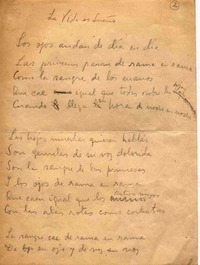 La Vida es Sueño
2
Los ojos andan de día en día
Las princesas posan de rama en rama
Como la sangre de los enanos
Que cae igual que todas sobre
Cuando llega la hora de noche en noche
Las hojas muertas quieren hablar
Son gemelas de voz dolorida
Son la sangre de las princesas
Y los ojos de rama en rama
Que caen igual que los
Con las alas rotas como corbatas
La sangre cae de rama en rama
De ojo en ojo y de voz en voz